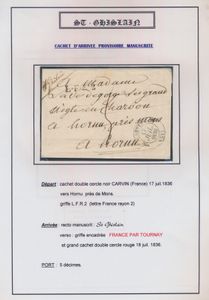 ST - GHISLAIN
CACHET D'ARRIVEE PROVISOIRE MANUSCRITE
A Madame
à hornu près mons
à hornu
Départ : cachet double cercle noir CARVIN (France) 17 juil. 1836
vers Hornu près de Mons.
griffe L.F.R.2 (lettre France rayon 2)
Arrivée : recto manuscrit : St Ghislain
verso : griffe encadrée FRANCE PAR TOURNAY
et grand cachet double cercle rouge 18 juil. 1836.
PORT : 5 décimes.